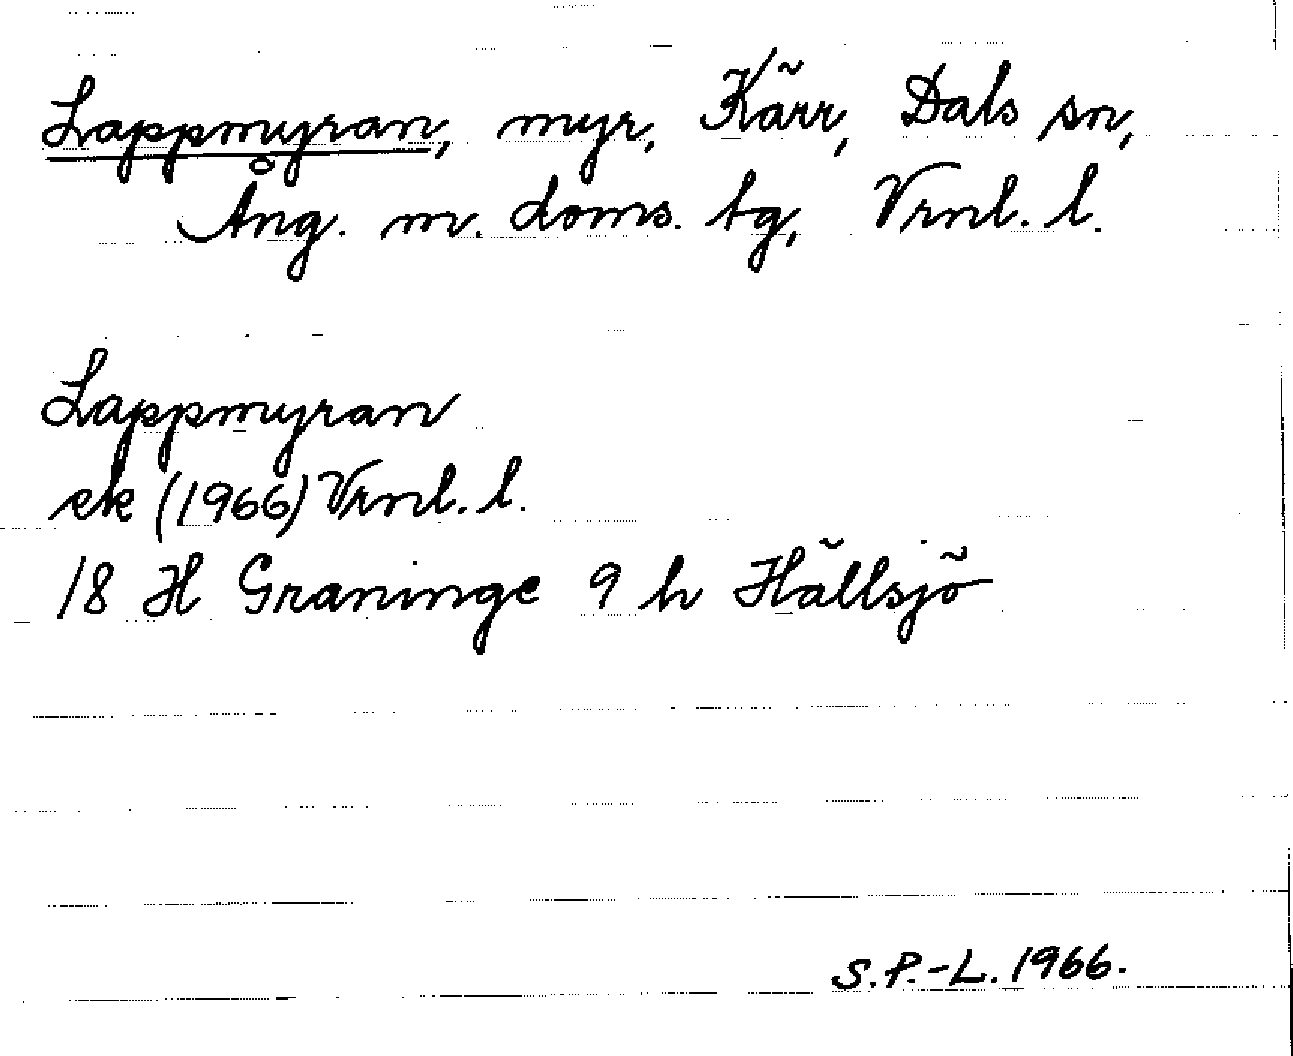 Lappmyran, myr, Kärr, Dals sn,
Ång. m. doms. tg, Vrnl. l.
Lappmyran
ek (1966) Vrnl. l.
18 H Graninge 9 h Hällsjö
S.P.-L. 1966.